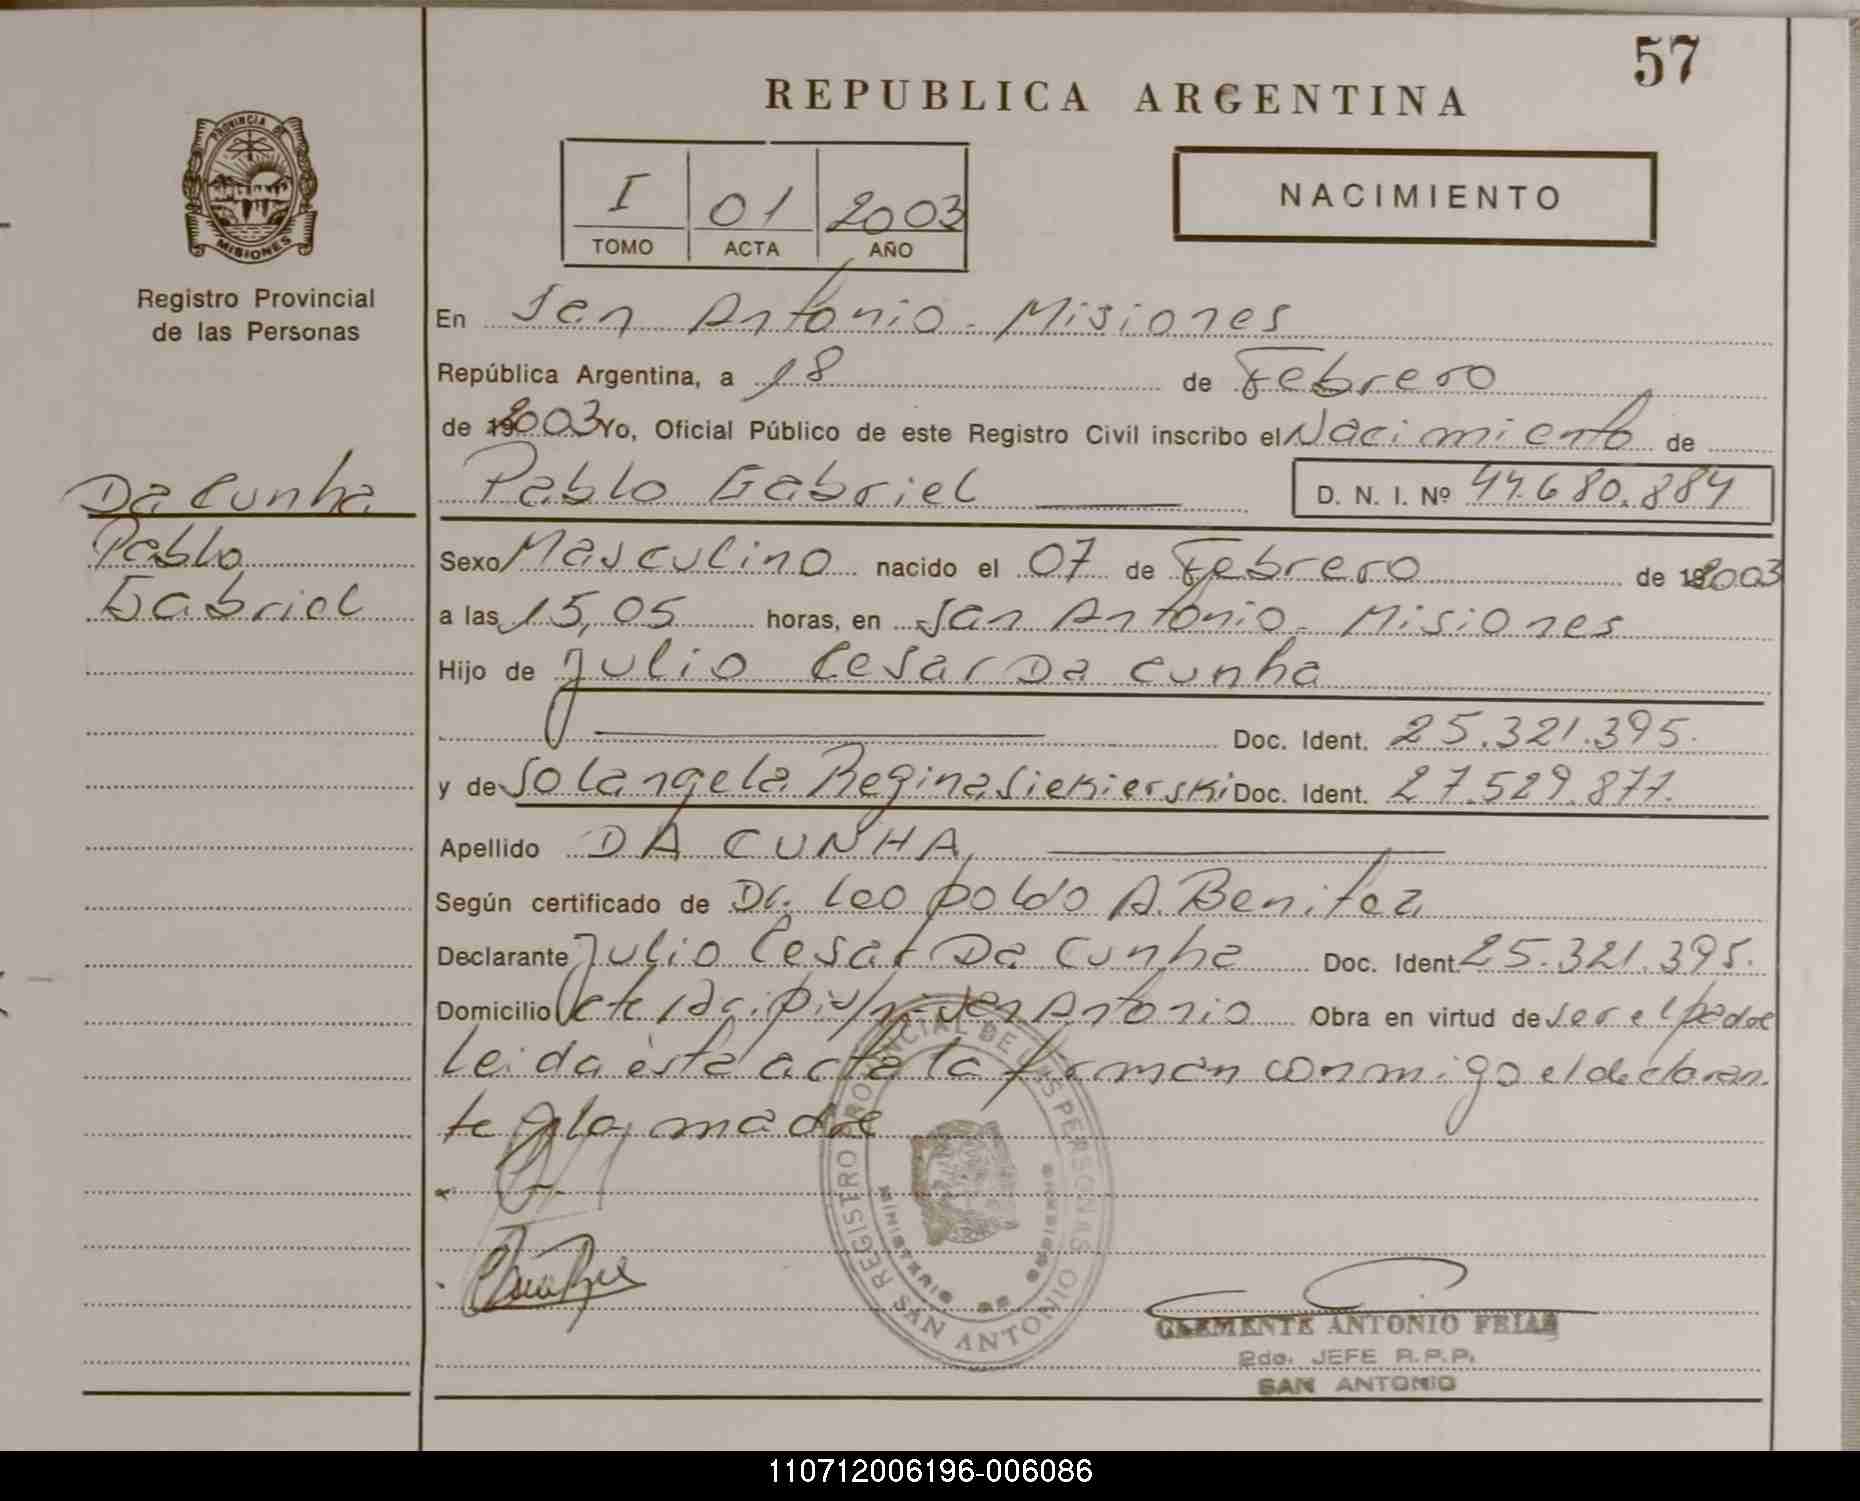 57
REPUBLICA ARGENTINA
PROVINCIA DE
MISIONES
Registro Provincial
de las Personas
I 01 2003
TOMO ACTA AÑO
NACIMIENTO
En San Antonio - Misiones
República Argentina, a 18 de Febrero
de 2003 Yo, Oficial Público de este Registro Civil inscribo el Nacimiento de
Pablo Gabriel D. N. I. Nº 44.680.884
Da Cunha
Pablo
Gabriel
Sexo Masculino nacido el 07 de Febrero de 2003
a las 15,05 horas, en San Antonio - Misiones
Hijo de Julio Cesar Da Cunha
Doc. Ident. 25.321.395.
y de Solangela Regina Siekierski Doc. Ident. 27.529.877.
Apellido DA CUNHA
Según certificado de Dr. Leopoldo A. Benitez
Declarante Julio Cesar Da Cunha Doc. Ident. 25.321.395.
Domicilio San Antonio Obra en virtud de ser el padre
Leida ésta acta la firman conmigo el declaran
te y la madre
REGISTRO PROVINCIAL DE LAS PERSONAS
MINISTERIO DE GOBIERNO
SAN ANTONIO
CLEMENTE ANTONIO FRIAS
2do. JEFE R.P.P.
SAN ANTONIO
110712006196-006086